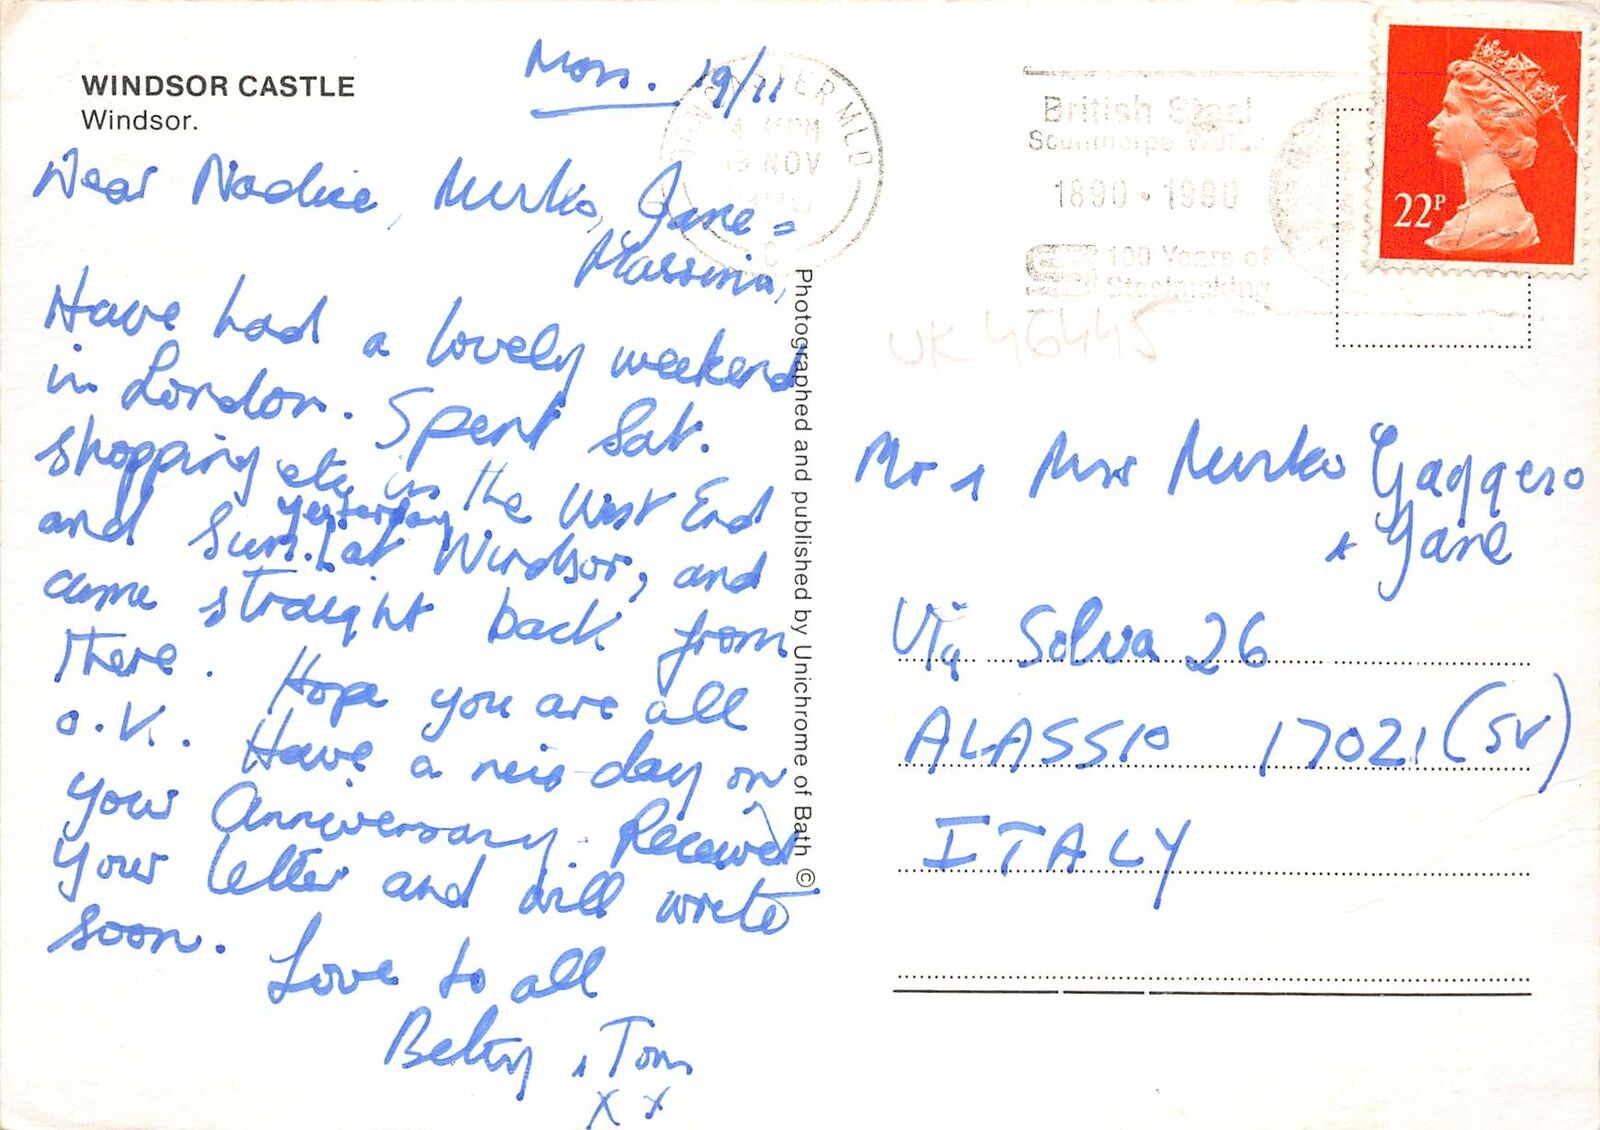 WINDSOR CASTLE
Windsor.
Mon. 19/11
Dear Nadice, Mirko, Jane &
Massima,
Have had a lovely weekend
in London. Spent Sat.
shopping etc in the West End
and Sun. yesterday at Windsor, and
came straight back from
there. Hope you are all
o.k. Have a nice day on
your Anniversary. Received
your letter and will write
soon.
Love to all
Betty & Tom
x x
Photographed and published by Unichrome of Bath ©
19 NOV
British Steel
Scunthorpe Works
1890 • 1990
100 Years of
Steelmaking
22P
UK 46445
Mr & Mrs Mirko Gaggero
& Jane
Via Solva 26
ALASSIO 17021 (SV)
ITALY